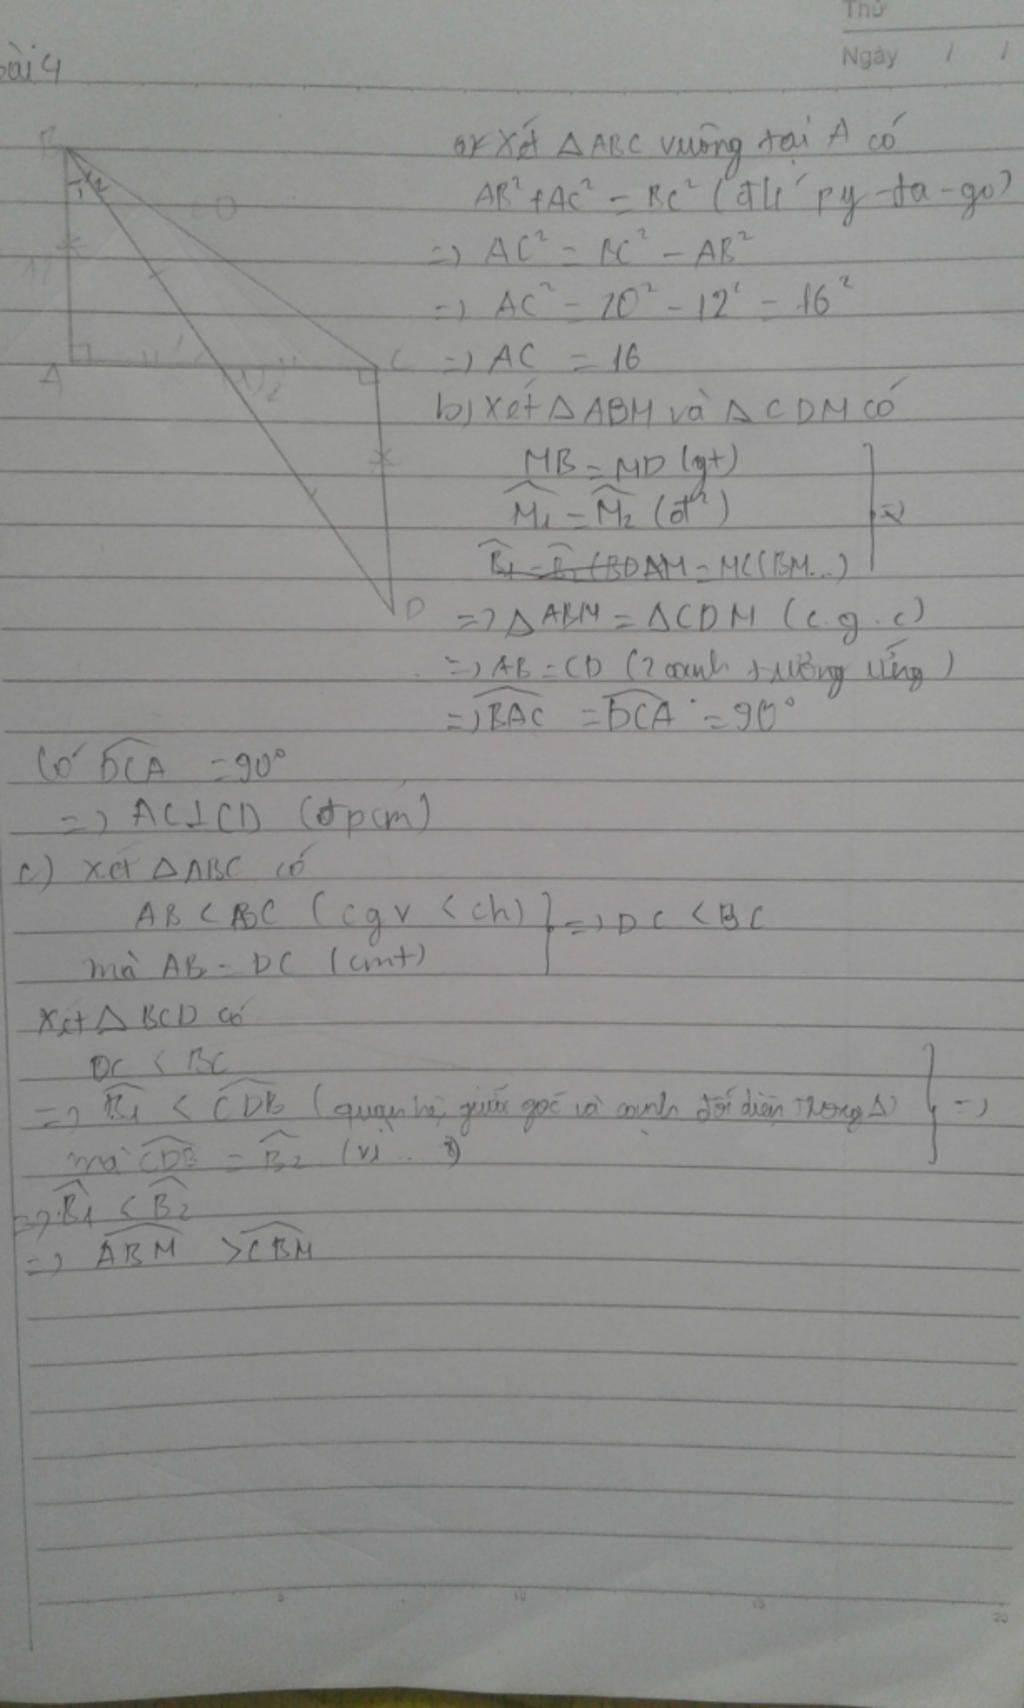 Thứ
Ngày / /
bài 4
a, Xét △ABC vuông tại A có
AB² + AC² = BC² (đlí py-ta-go)
=> AC² = BC² - AB²
=> AC² = 20² - 12² = 16²
=> AC = 16
b) Xét △ABM và △CDM có
MB = MD (gt)
M₁ = M₂ (đđ)
AM = MC (BM...)
=> △ABM = △CDM (c.g.c)
=> AB = CD (2 cạnh tương ứng)
=> BAC = DCA = 90°
Có DCA = 90°
=> AC⊥CD (đpcm)
c) xét △ABC có
AB < BC (cgv < ch) } => DC < BC
mà AB = DC (cmt)
Xét △ BCD có
DC < BC
=> B₁ < CDB (quan hệ giữa góc và cạnh đối diện trong △) } =>
mà CDB = B₂ (vì ..
=> B₁ < B₂
=> ABM > CBM
B
1 2
A
C
1 2
D
5 10 15 20